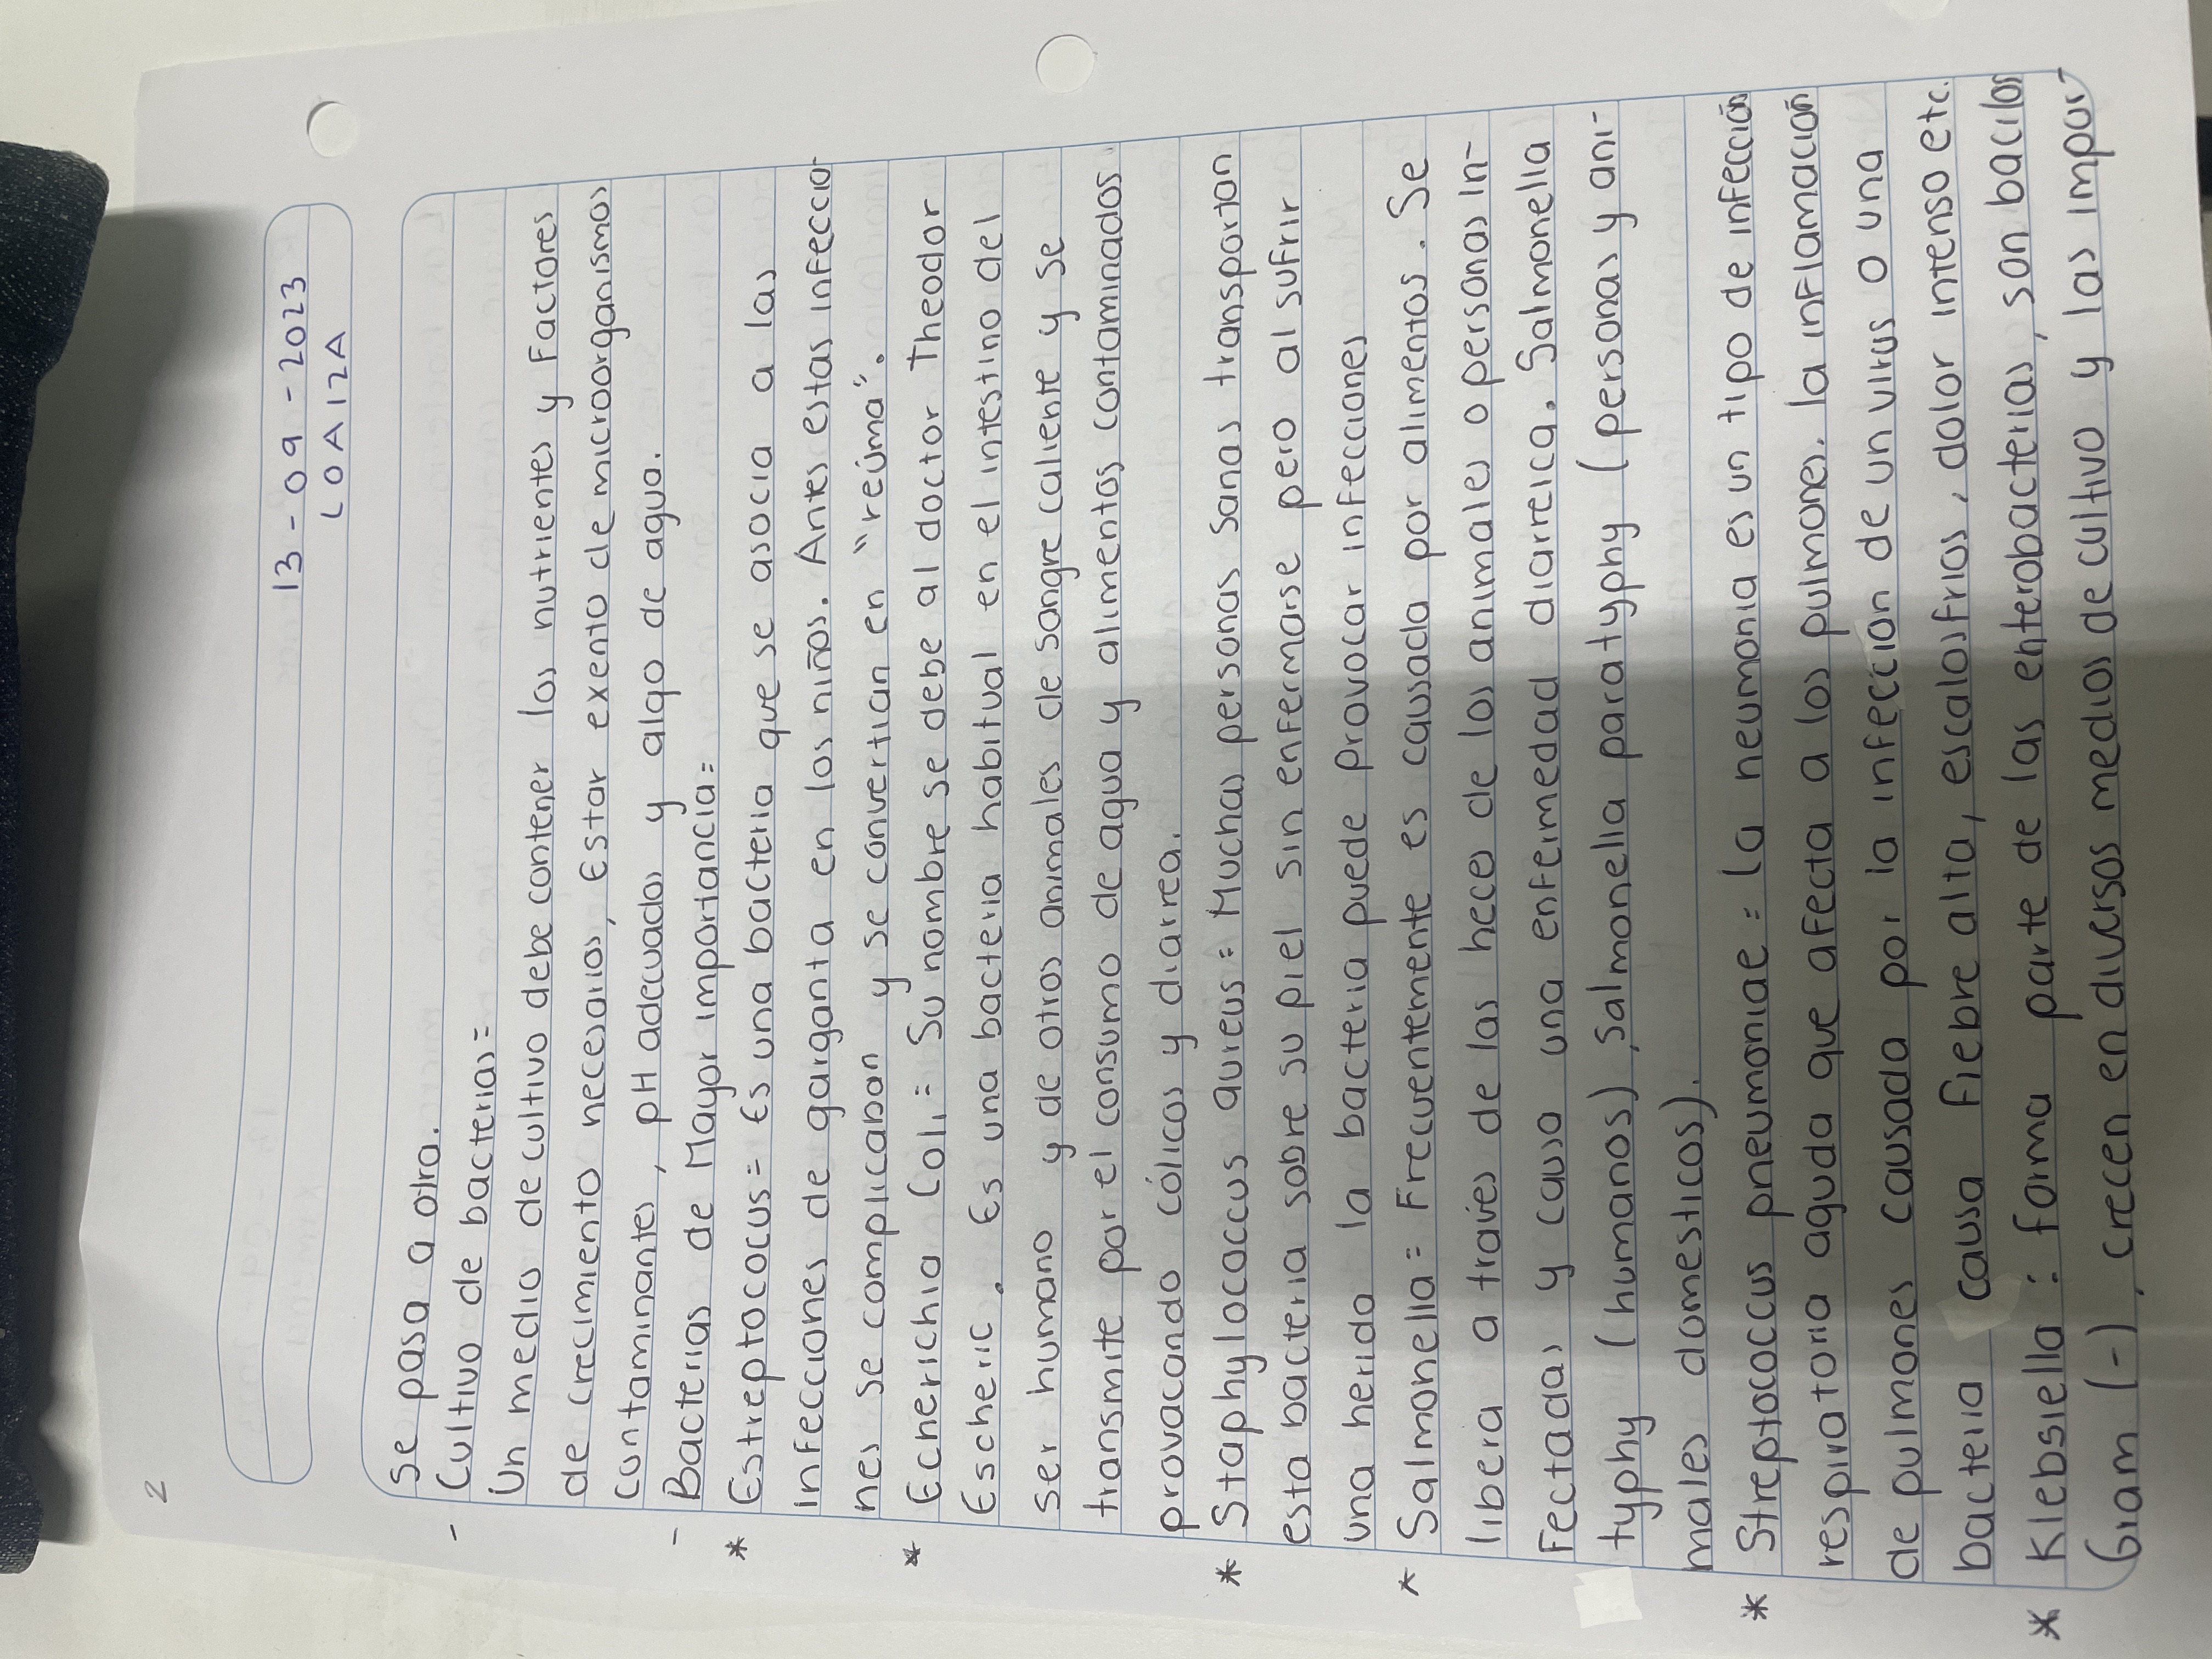 2
13-09-2023
LOA12A
Se pasa a otra.
- Cultivo de bacterias=
Un medio de cultivo debe contener los nutrientes y Factores
de crecimiento necesarios, Estar exento de microorganismos
contaminantes, pH adecuados y algo de agua.
- Bacterias de Mayor importancia=
* Estreptococus= Es una bacteria que se asocia a las
infecciones de garganta en los niños. Antes estas infeccio-
nes se complicaban y se convertian en "reúma".
* Echerichia Coli= Su nombre se debe al doctor Theodor
Escheric. Es una bacteria habitual en el intestino del
ser humano y de otros animales de sangre caliente y se
transmite por el consumo de agua y alimentos contaminados
provacando cólicos y diarrea.
* Staphylococcus aureus= Muchas personas sanas transportan
esta bacteria sobre su piel sin enfermarse pero al sufrir
una herida la bacteria puede provocar infecciones
* Salmonella= Frecuentemente es causada por alimentos. Se
libera a través de las heces de los animales o personas in-
Fectadas y causa una enfermedad diarreica. Salmonella
typhy (humanos), salmonella paratyphy (personas y ani-
males domesticos).
* Streptococcus pneumoniae= la neumonia es un tipo de infección
respiratoria aguda que afecta a los pulmones. la inflamación
de pulmones causada por la infeccion de un virus o una
bacteria causa Fiebre alta, escalosfrios, dolor intenso etc.
* Klebsiella: forma parte de las enterobacterias, son bacilos
Gram (-), crecen en diversos medios de cultivo y las impor-